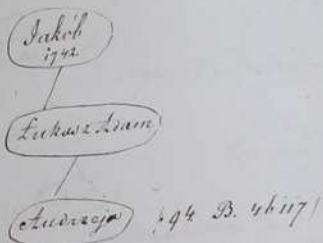 Jakób
1742
Łukasz Adam
Andrzeja 94 B.